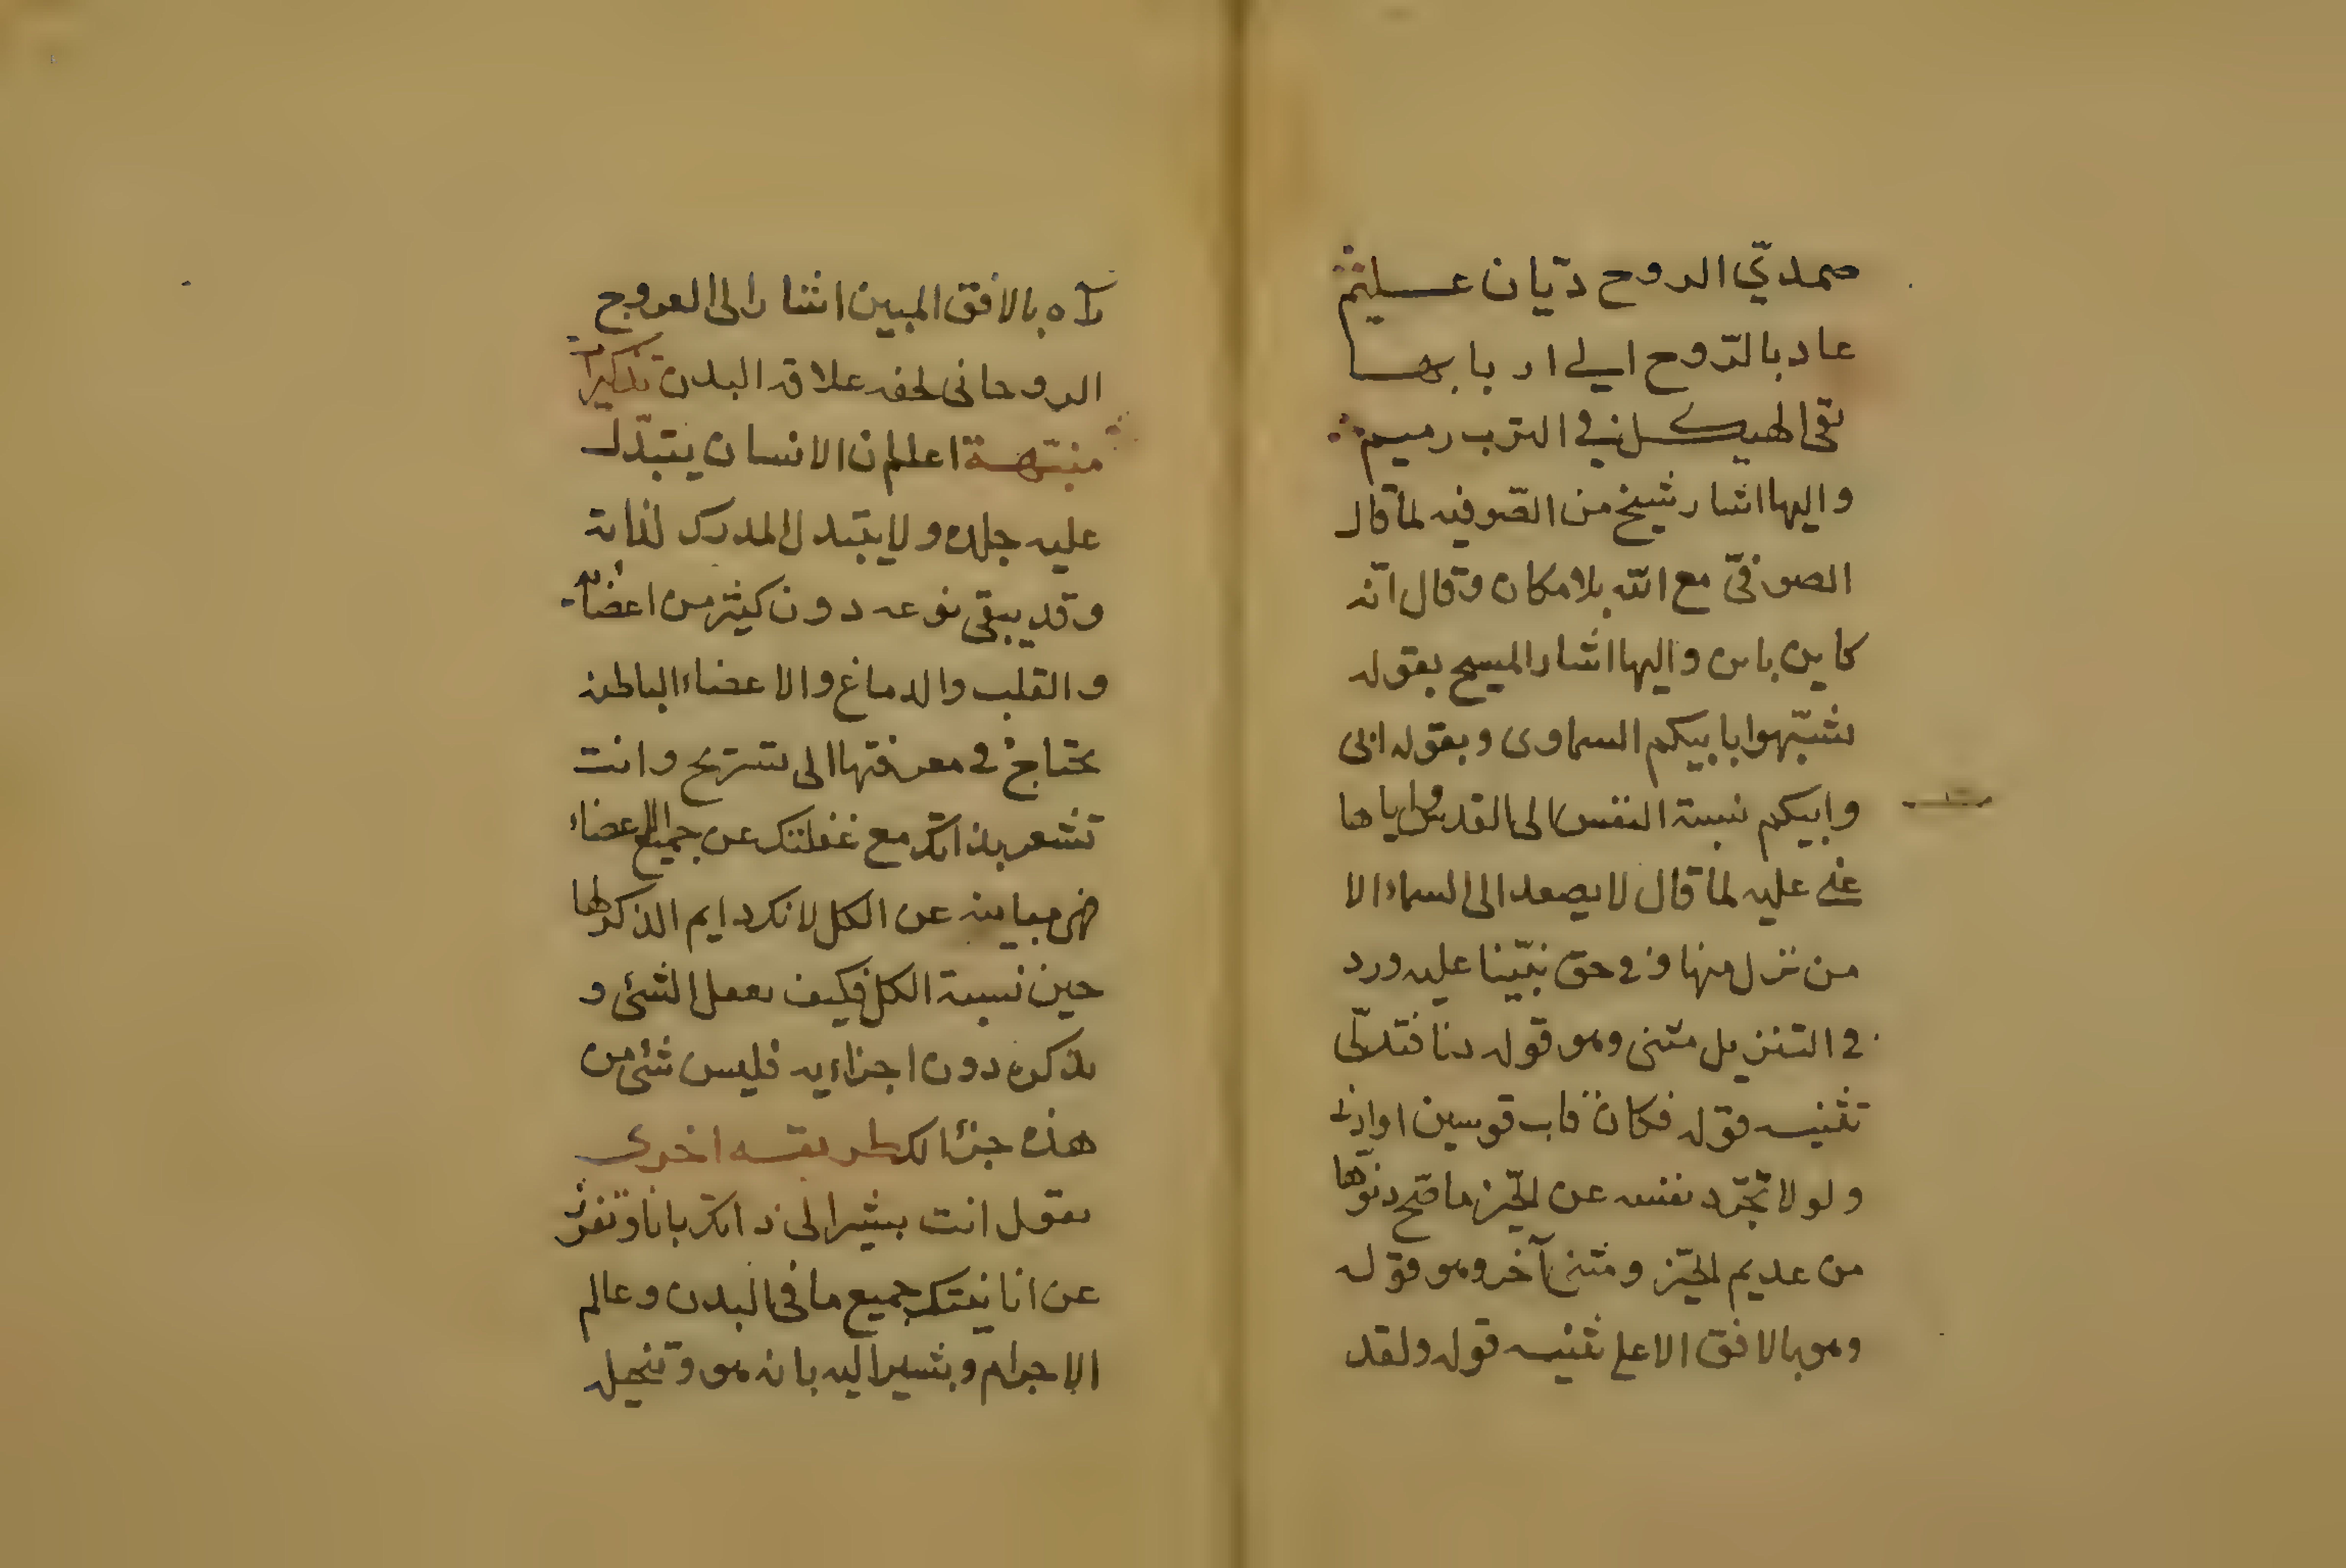 صمديّ الروح ديّان عليم
عاد بالرّوح الي اربابها
بقى الهيكل في الترب رميم
واليها اشار شيخ من الصّوفيه لمّا قال
الصوفيّ مع الله بلا مكان وقال انّه
كاين باين واليها اشار المسيح بقوله
تشبّهوا بابيكم السماوى وبقوله ابى
وابيكم نسبة النفس الى القدس واياها
عنى عليه لمّا قال لا يصعد الى السماء الا
من نزل منها وفي حق نبيّنا عليه ورد
في التنزيل مثنى وهو قوله دنا فتدلّى
تثنيه قوله فكان قاب قوسين او ادنى
ولولا تجرّد نفسه عن الحيّز ما صح دنوّها
من عديم الحيّز ومثنى آخر وهو قوله
وهو بالافق الاعلى تثنيه قوله ولقد
رآه بالافق المبين اشار الى العروج
الروحانى علاقه البدن تذكيرات
منبّهة اعلم ان الانسان يتبدّل
عليه جلده ولا يتبدل المدرك لذاته
وقد يبقى نوعه دون كثير من اعضائه
والقلب والدماغ والاعضاء الباطنه
يحتاج في معرفتها الى تشريح وانت
تشعر بذاتك مع غفلتك عن جميع الاعضاء
فهى مباينه عن الكل لانك دايم الذكر لها
حين نسية الكل فكيف يعقل الشئ و
يذكره دون اجزاءيه فليس شئ من
هذه جزءا لك طريقه اخرى
تقول انت بشير الى ذاتك بانا وتفرز
عن انانيتك جميع ما في البدن وعالم
الاجرام وتشير اليه بانه هو وتنحيله